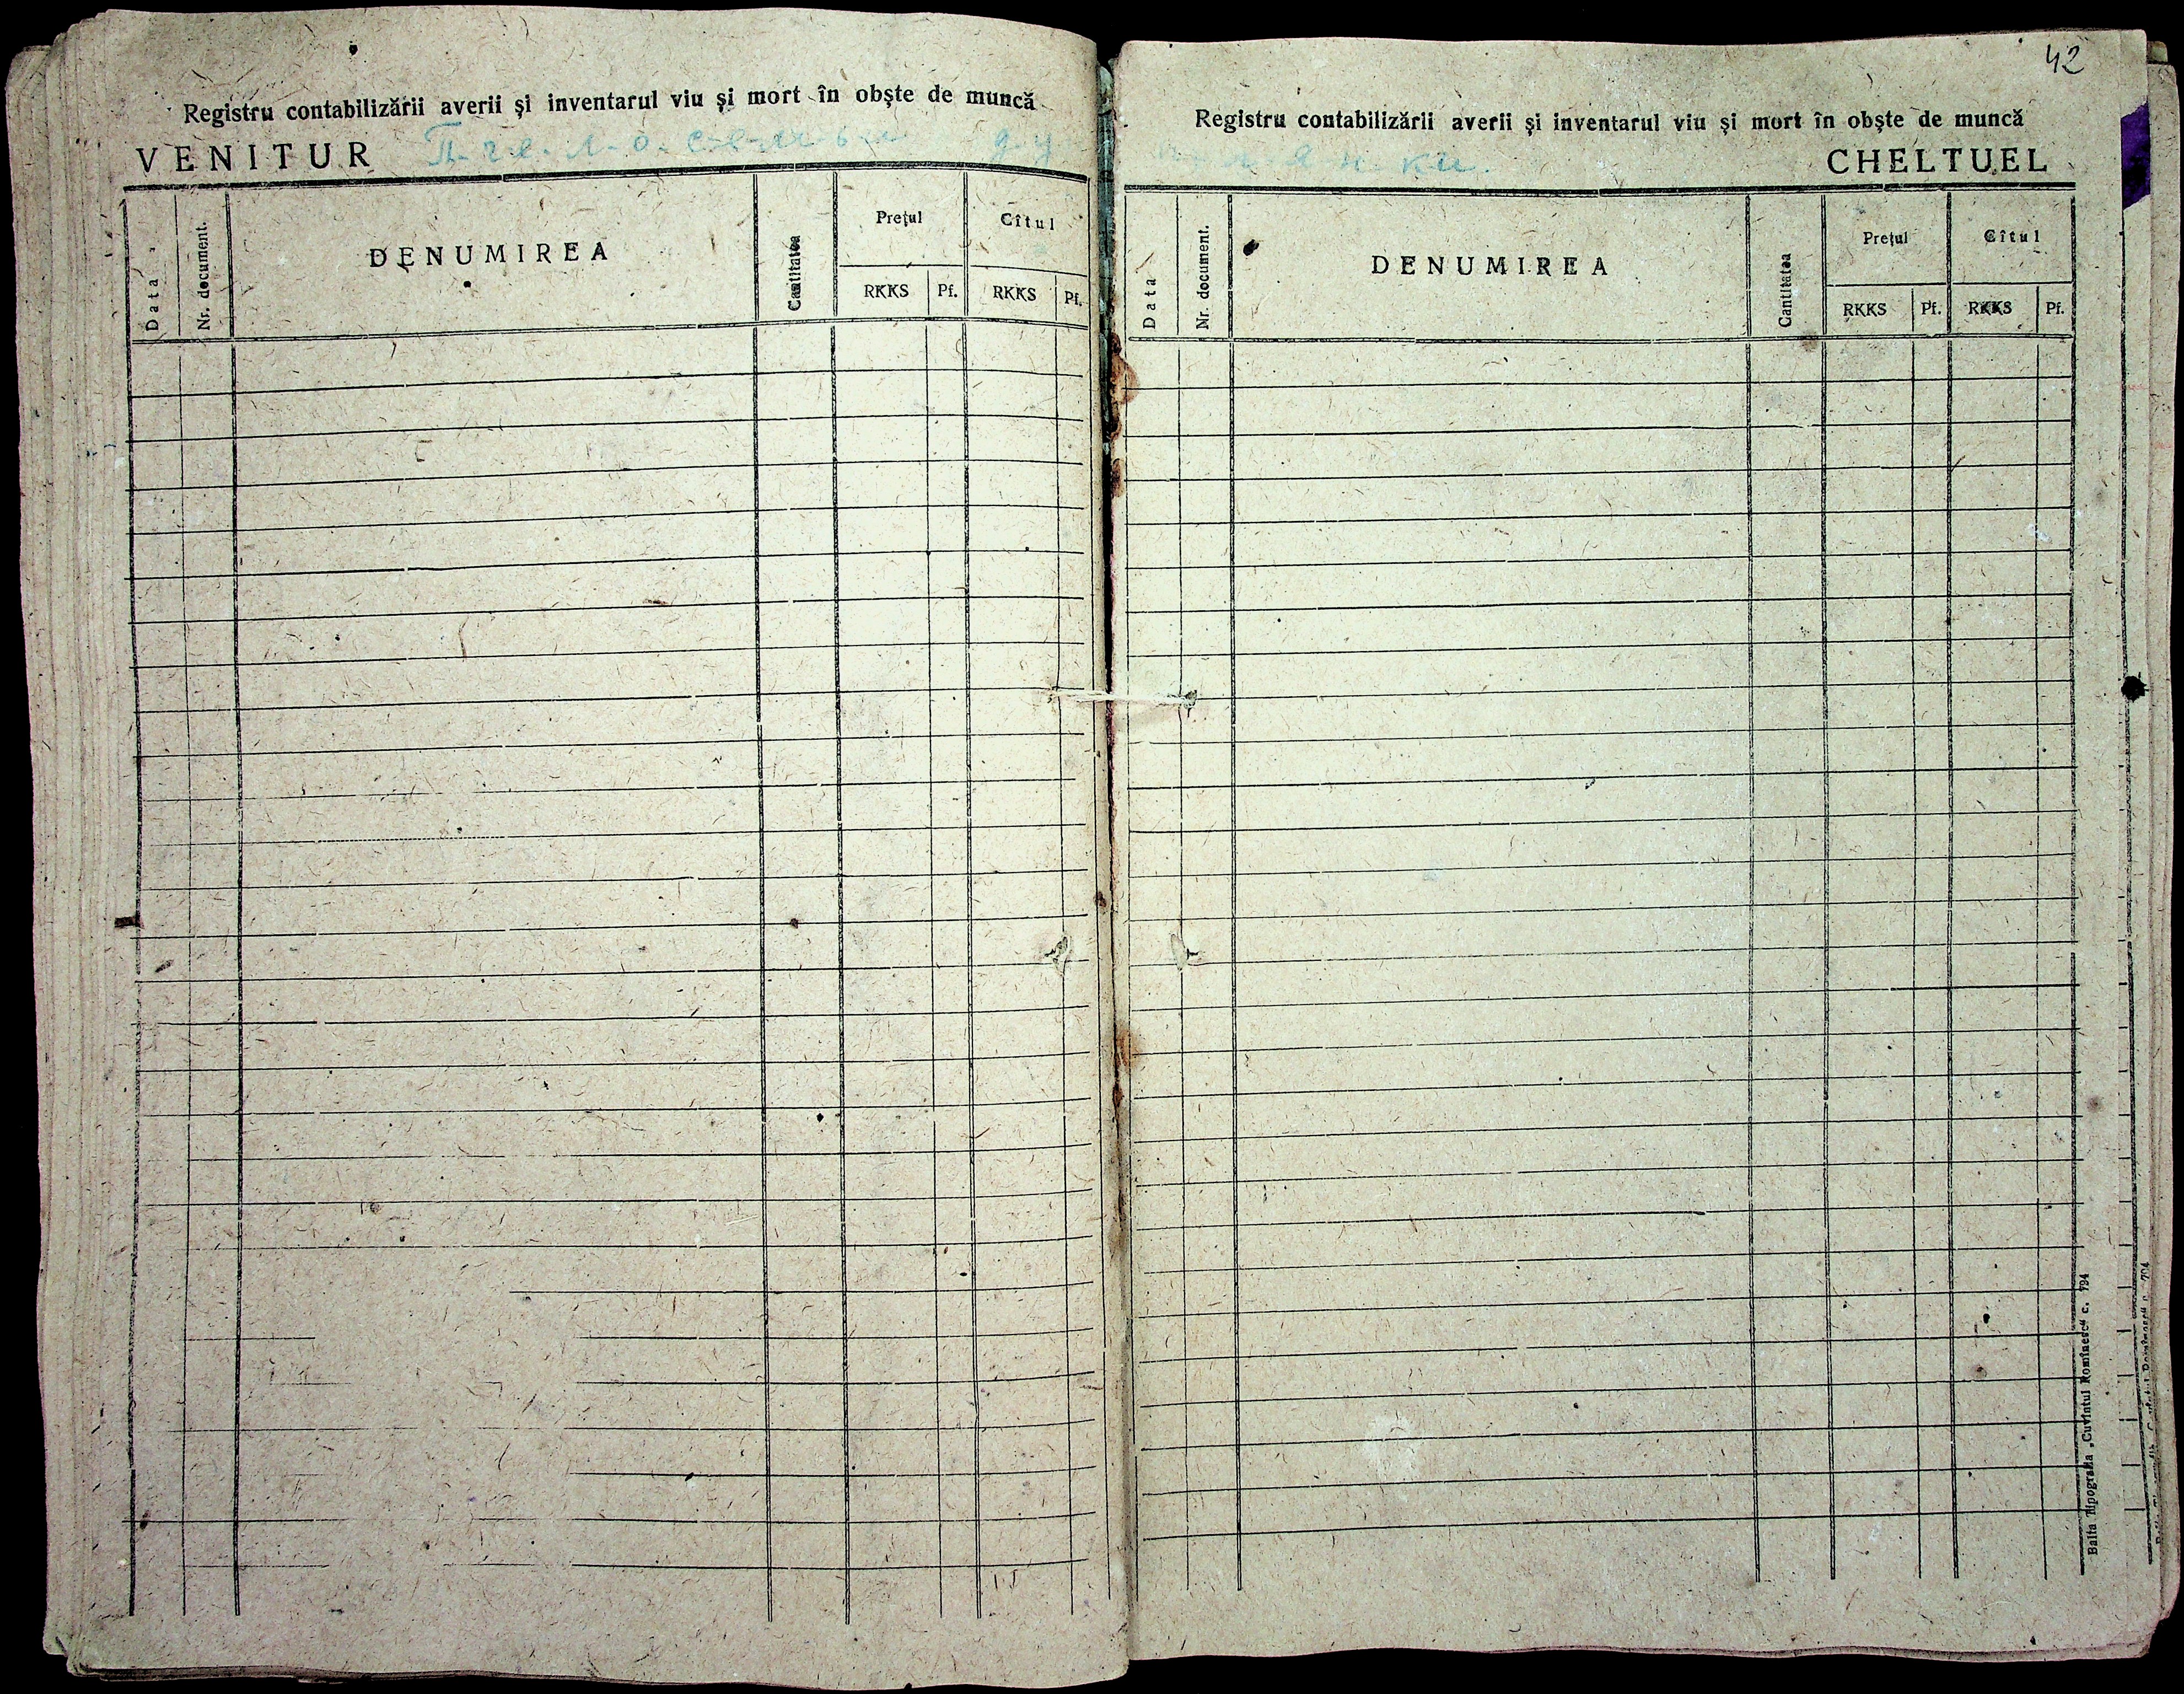 Registru contabilizării averii și inventarul viu și mort în obște de muncă
VENITUR П-ч-е-л-о-с-е-м-ь-и
Data
Nr. document.
DENUMIREA
Cantitatea
Prețul
Cîtul
RKKS
Pf.
RKKS
Pf.
42
Registru contabilizării averii și inventarul viu și mort în obște de muncă
CHELTUEL
Data
Nr. document.
DENUMIREA
Cantitatea
Prețul
Cîtul
RKKS
Pf.
RKKS
Pf.
Balta Tipografia „Cuvîntul Romînesc“ c. 794